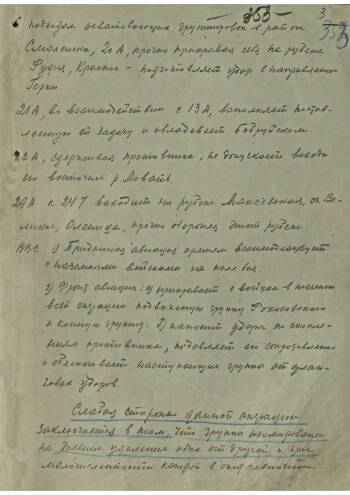 353 3
353
с подходом охватывающих группировок в район
Смоленска, 20А, прочно прикрывая себя на рубеже
Рудня, Красное – подготовляет удар в направлении
Горки
21А во взаимодействии с 13А, выполняет постав-
ленную ей задачу и овладевает Бобруйском.
22А, сдерживая противника, не допускает выхода
его восточнее р. Ловать.
29А к 24.7 выходит на рубеж
Оленица, прочно обороняя этот рубеж
ВВС 1) Приданная авиация армиям взаимодействует
с наземными войсками на поле боя.
2) Фронт. авиация: а) прикрывает с воздуха в течении
всей операции подвижную группу Рокоссовского
и конную группу. б) наносит удары по скопле-
ниям противника, подавляет его сопротивление
и обеспечивает наступающие группы от флан-
говых ударов.
Слабая сторона данной операции
заключается в том, что группы изолированы
на большом удалении одна от другой и при
малочисленности каждой в отдельности